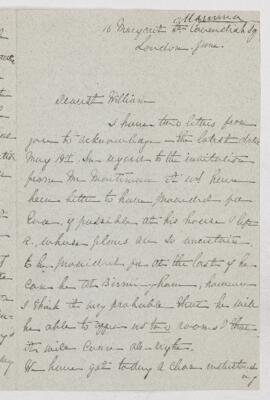 Mamma
16 Margaret St. Cavendish Sq
London. June.
Dearest William
I have two letters from
you to acknowledge - the latest date
May 19th. In regard to the invitation
from Mr. it wd have
been better to have provided for
if possible at his house & left
R., whose plans are so uncertain
to be provided for at the last if he
can be at Birmingham, however
I think it very probable that he will
be able to us two rooms & that
it will come all right.
We have got today a